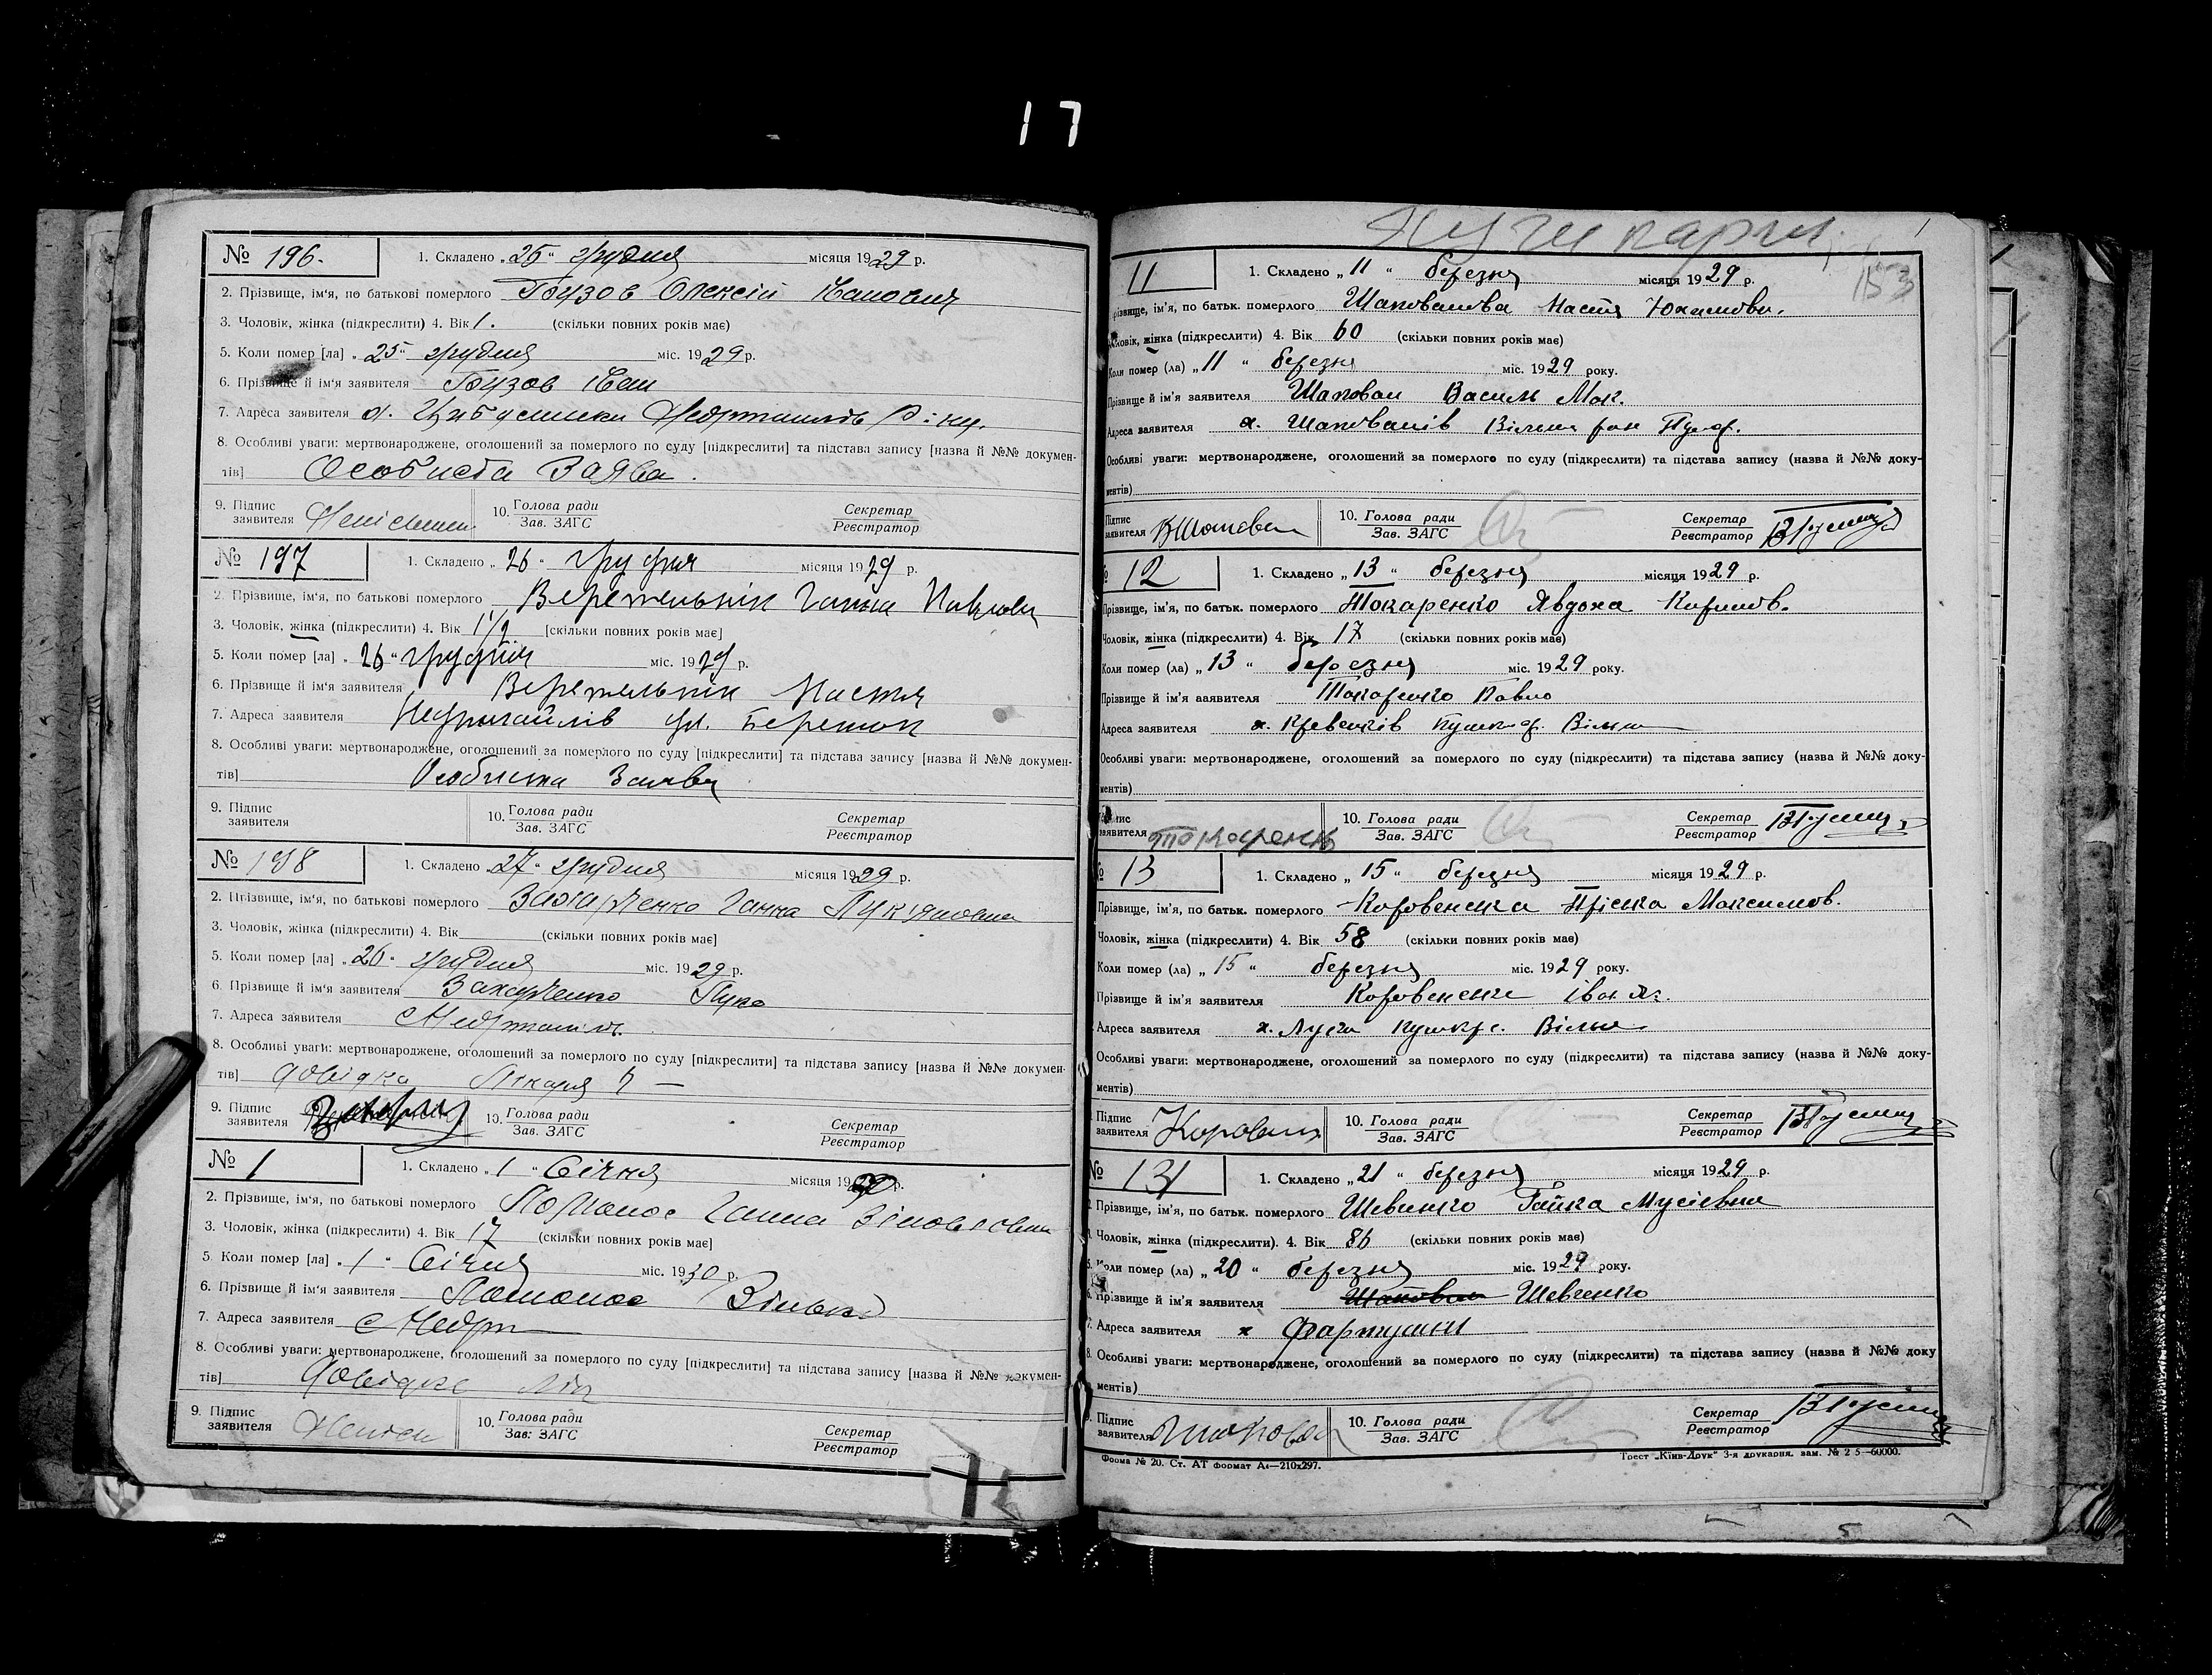 17
№ 196.
1. Складено „25“ грудня місяця 1929 р.
2. Прізвище, ім'я, по батькові померлого Гузов Олексій Іванович
3. Чоловік, жінка (підкреслити) 4. Вік 1. (скільки повних років має)
5. Коли помер [ла] „25“ грудня міс. 1929 р.
6. Прізвище й ім'я заявителя Гузов Іван
7. Адреса заявителя х.
8. Особливі уваги: мертвонароджене, оголошений за померлого по суду [підкреслити] та підстава запису [назва й №№ докумен-
тів] Особиста Заява.
9. Підпис заявителя
10. Голова ради Зав. ЗАГС
Секретар Реєстратор
№ 197
1. Складено „26“ грудня місяця 1929 р.
2. Прізвище, ім'я, по батькові померлого Веретельнік Ганна Павлови
3. Чоловік, жінка (підкреслити) 4. Вік 1 1/2 [скільки повних років має]
5. Коли помер [ла] „26“ грудня міс. 1929 р.
6. Прізвище й ім'я заявителя Веретельнік Настя
7. Адреса заявителя Недригайлів вул. Бережок
8. Особливі уваги: мертвонароджене, оголошений за померлого по суду [підкреслити] та підстава запису [назва й №№ докумен-
тів] Особиста Заява
9. Підпис заявителя
10. Голова ради Зав. ЗАГС
Секретар Реєстратор
№ 198
1. Складено „27“ грудня місяця 1929 р.
2. Прізвище, ім'я, по батькові померлого Захарченко Ганна Лук'яновна
3. Чоловік, жінка (підкреслити) 4. Вік (скільки повних років має]
5. Коли помер [ла] „26“ грудня міс. 1929 р.
6. Прізвище й ім'я заявителя Захарченко Лука
7. Адреса заявителя
8. Особливі уваги: мертвонароджене, оголошений за померлого по суду [підкреслити] та підстава запису [назва й №№ докумен-
тів] Довідка Лікаря
9. Підпис заявителя
10. Голова ради Зав. ЗАГС
Секретар Реєстратор
№ 1
1. Складено „1“ Січня місяця 19 р.
2. Прізвище, ім'я, по батькові померлого Ганна
3. Чоловік, жінка (підкреслити) 4. Вік 17 (скільки повних років має]
5. Коли помер [ла] „1“ Січня міс. 1930 р.
6. Прізвище й ім'я заявителя
7. Адреса заявителя с Недри
8. Особливі уваги: мертвонароджене, оголошений за померлого по суду [підкреслити] та підстава запису [назва й №№ докумен-
тів] Довідка
9. Підпис заявителя
10. Голова ради Зав. ЗАГС
Секретар Реєстратор
153
11
1. Складено „11“ березня місяця 1929 р.
різвище, ім'я, по батьк. померлого Шаповалова Настя
Чоловік, жінка (підкреслити) 4. Вік 60 (скільки повних років має)
Коли помер (ла) „11“ березня міс. 1929 року.
Прізвище й ім'я заявителя Шаповал Василь Мак.
Адреса заявителя х. Шаповалів Вільша рай.
Особливі уваги: мертвонароджене, оголошений за померлого по суду (підкреслити) та підстава запису (назва й №№ доку-
ментів)
Підпис заявителя
10. Голова ради Зав. ЗАГС
Секретар Реєстратор
№ 12
1. Складено „13“ березня місяця 1929 р.
Прізвище, ім'я, по батьк. померлого Токаренко Явдоха Кирилов.
Чоловік, жінка (підкреслити) 4. Вік 17 (скільки повних років має)
Коли помер (ла) „13“ березня міс. 1929 року.
Прізвище й ім'я заявителя Токаренко Павло
Адреса заявителя х.
Особливі уваги: мертвонароджене, оголошений за померлого по суду (підкреслити) та підстава запису (назва й №№ доку-
ментів)
Підпис заявителя Токаренко
10. Голова ради Зав. ЗАГС
Секретар Реєстратор
№ 13
1. Складено „15“ березня місяця 1929 р.
Прізвище, ім'я, по батьк. померлого Коровенска Пріська Максимов.
Чоловік, жінка (підкреслити) 4. Вік 58 (скільки повних років має)
Коли помер (ла) „15“ березня міс. 1929 року.
Прізвище й ім'я заявителя Іван
Адреса заявителя х.
Особливі уваги: мертвонароджене, оголошений за померлого по суду (підкреслити) та підстава запису (назва й №№ доку-
ментів)
Підпис заявителя
10. Голова ради Зав. ЗАГС
Секретар Реєстратор
№
1. Складено „21“ березня місяця 1929 р.
Прізвище, ім'я, по батьк. померлого Шевченко Гапка Мусіевна
Чоловік, жінка (підкреслити). 4. Вік 86 (скільки повних років має)
5. Коли помер (ла) „20“ березня міс. 1929 року.
6. Прізвище й ім'я заявителя Шевченко
7. Адреса заявителя х Фартушни
8. Особливі уваги: мертвонароджене, оголошений за померлого по суду (підкреслити) та підстава запису (назва й №№ доку
ментів)
Підпис заявителя
10. Голова ради Зав. ЗАГС
Секретар Реєстратор
Форма № 20. Ст. АТ формат А4—210x297.
Трест „Київ-Друк“ 3-я друкарня. зам. № 2 5—60000.